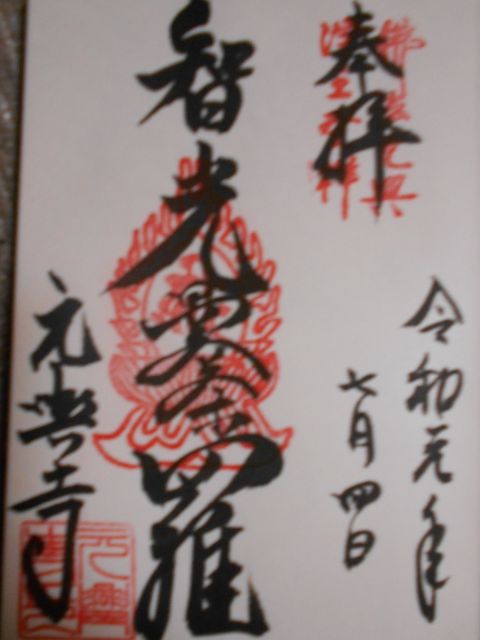 奉拝
令和元年
七月四日
智光曼荼羅
元興寺
元興